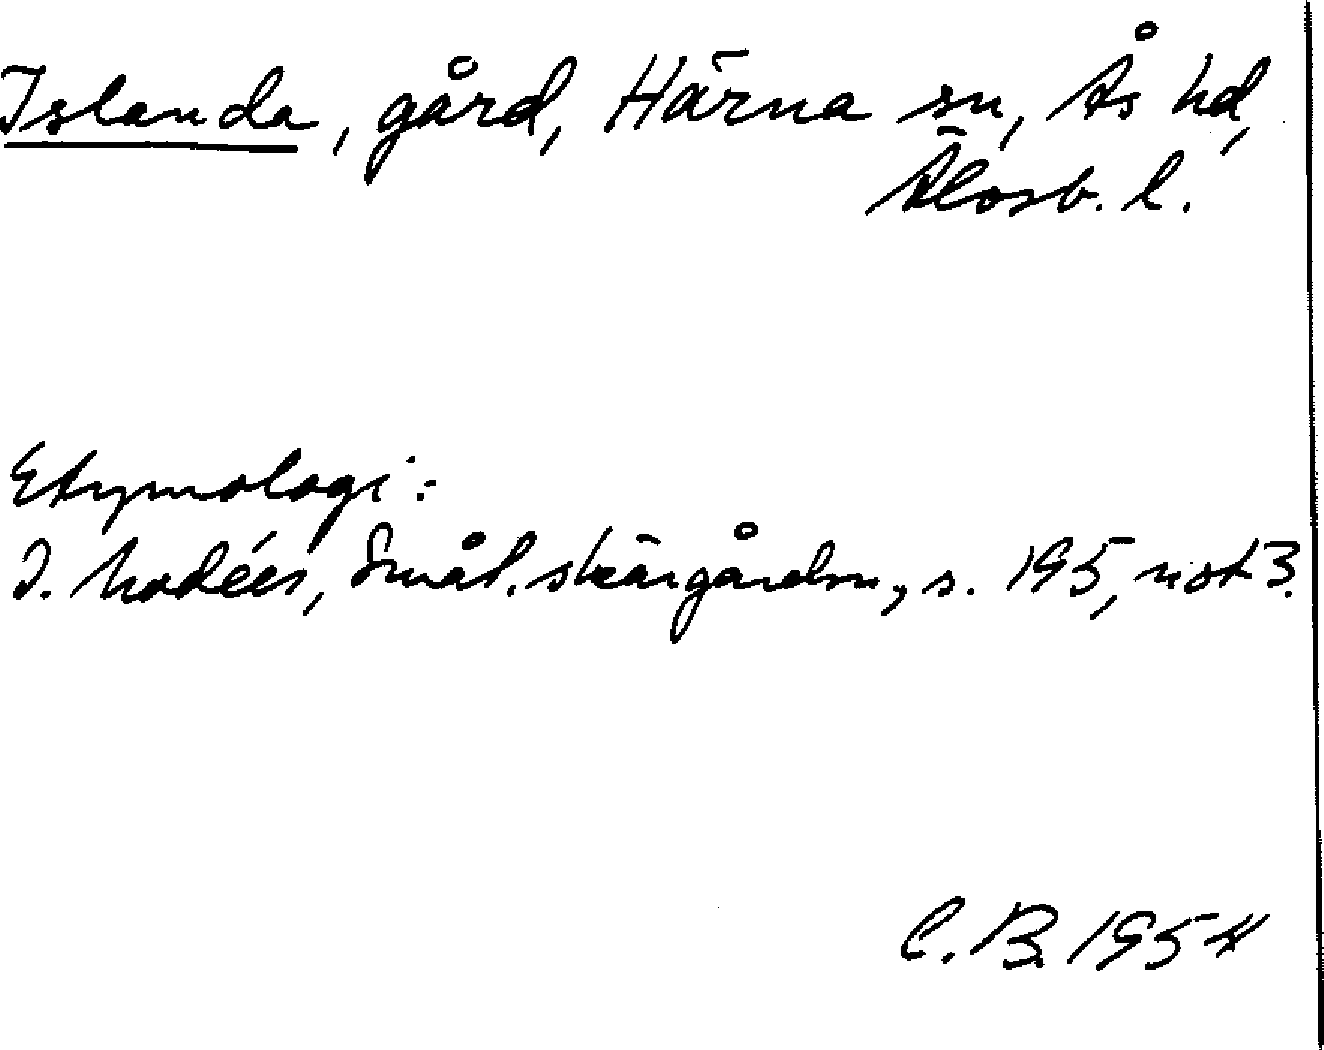 Islanda, gård, Härna sn, Ås hd,
Älvsb. l.
Etymologi:
I. Modéer, Smål. skärgårdsn., s. 195, not 3.
C. B. 1954